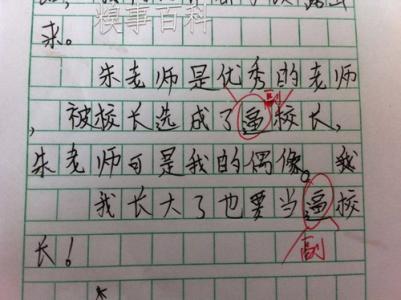 糗事百科
求。
朱老师是优秀的老师
副
，被校长选成了逼校长，
朱老师可是我的偶像。我
我长大了也要当逼校
长！
副